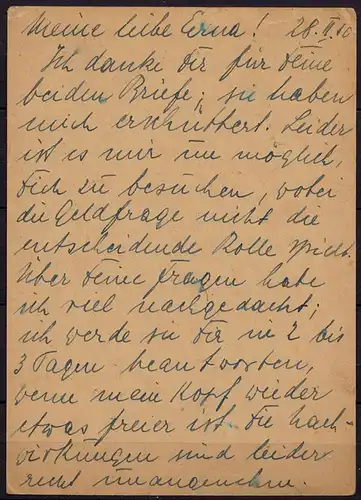 Meine liebe Erna! 28.II.50
Ich danke Dir für Deine
beiden Briefe; sie haben
mich erschüttert. Leider
ist es mir un möglich,
Dich zu besuchen, wobei
die Geldfrage nicht die
entscheidende Rolle spielt.
Über Deine Fragen habe
ich viel nachgedacht;
ich werde sie Dir in 2 bis
3 Tagen beantworten,
wenn mein Kopf wieder
etwas freier ist. Die Nach-
wirkungen sind leider
recht unangenehm.